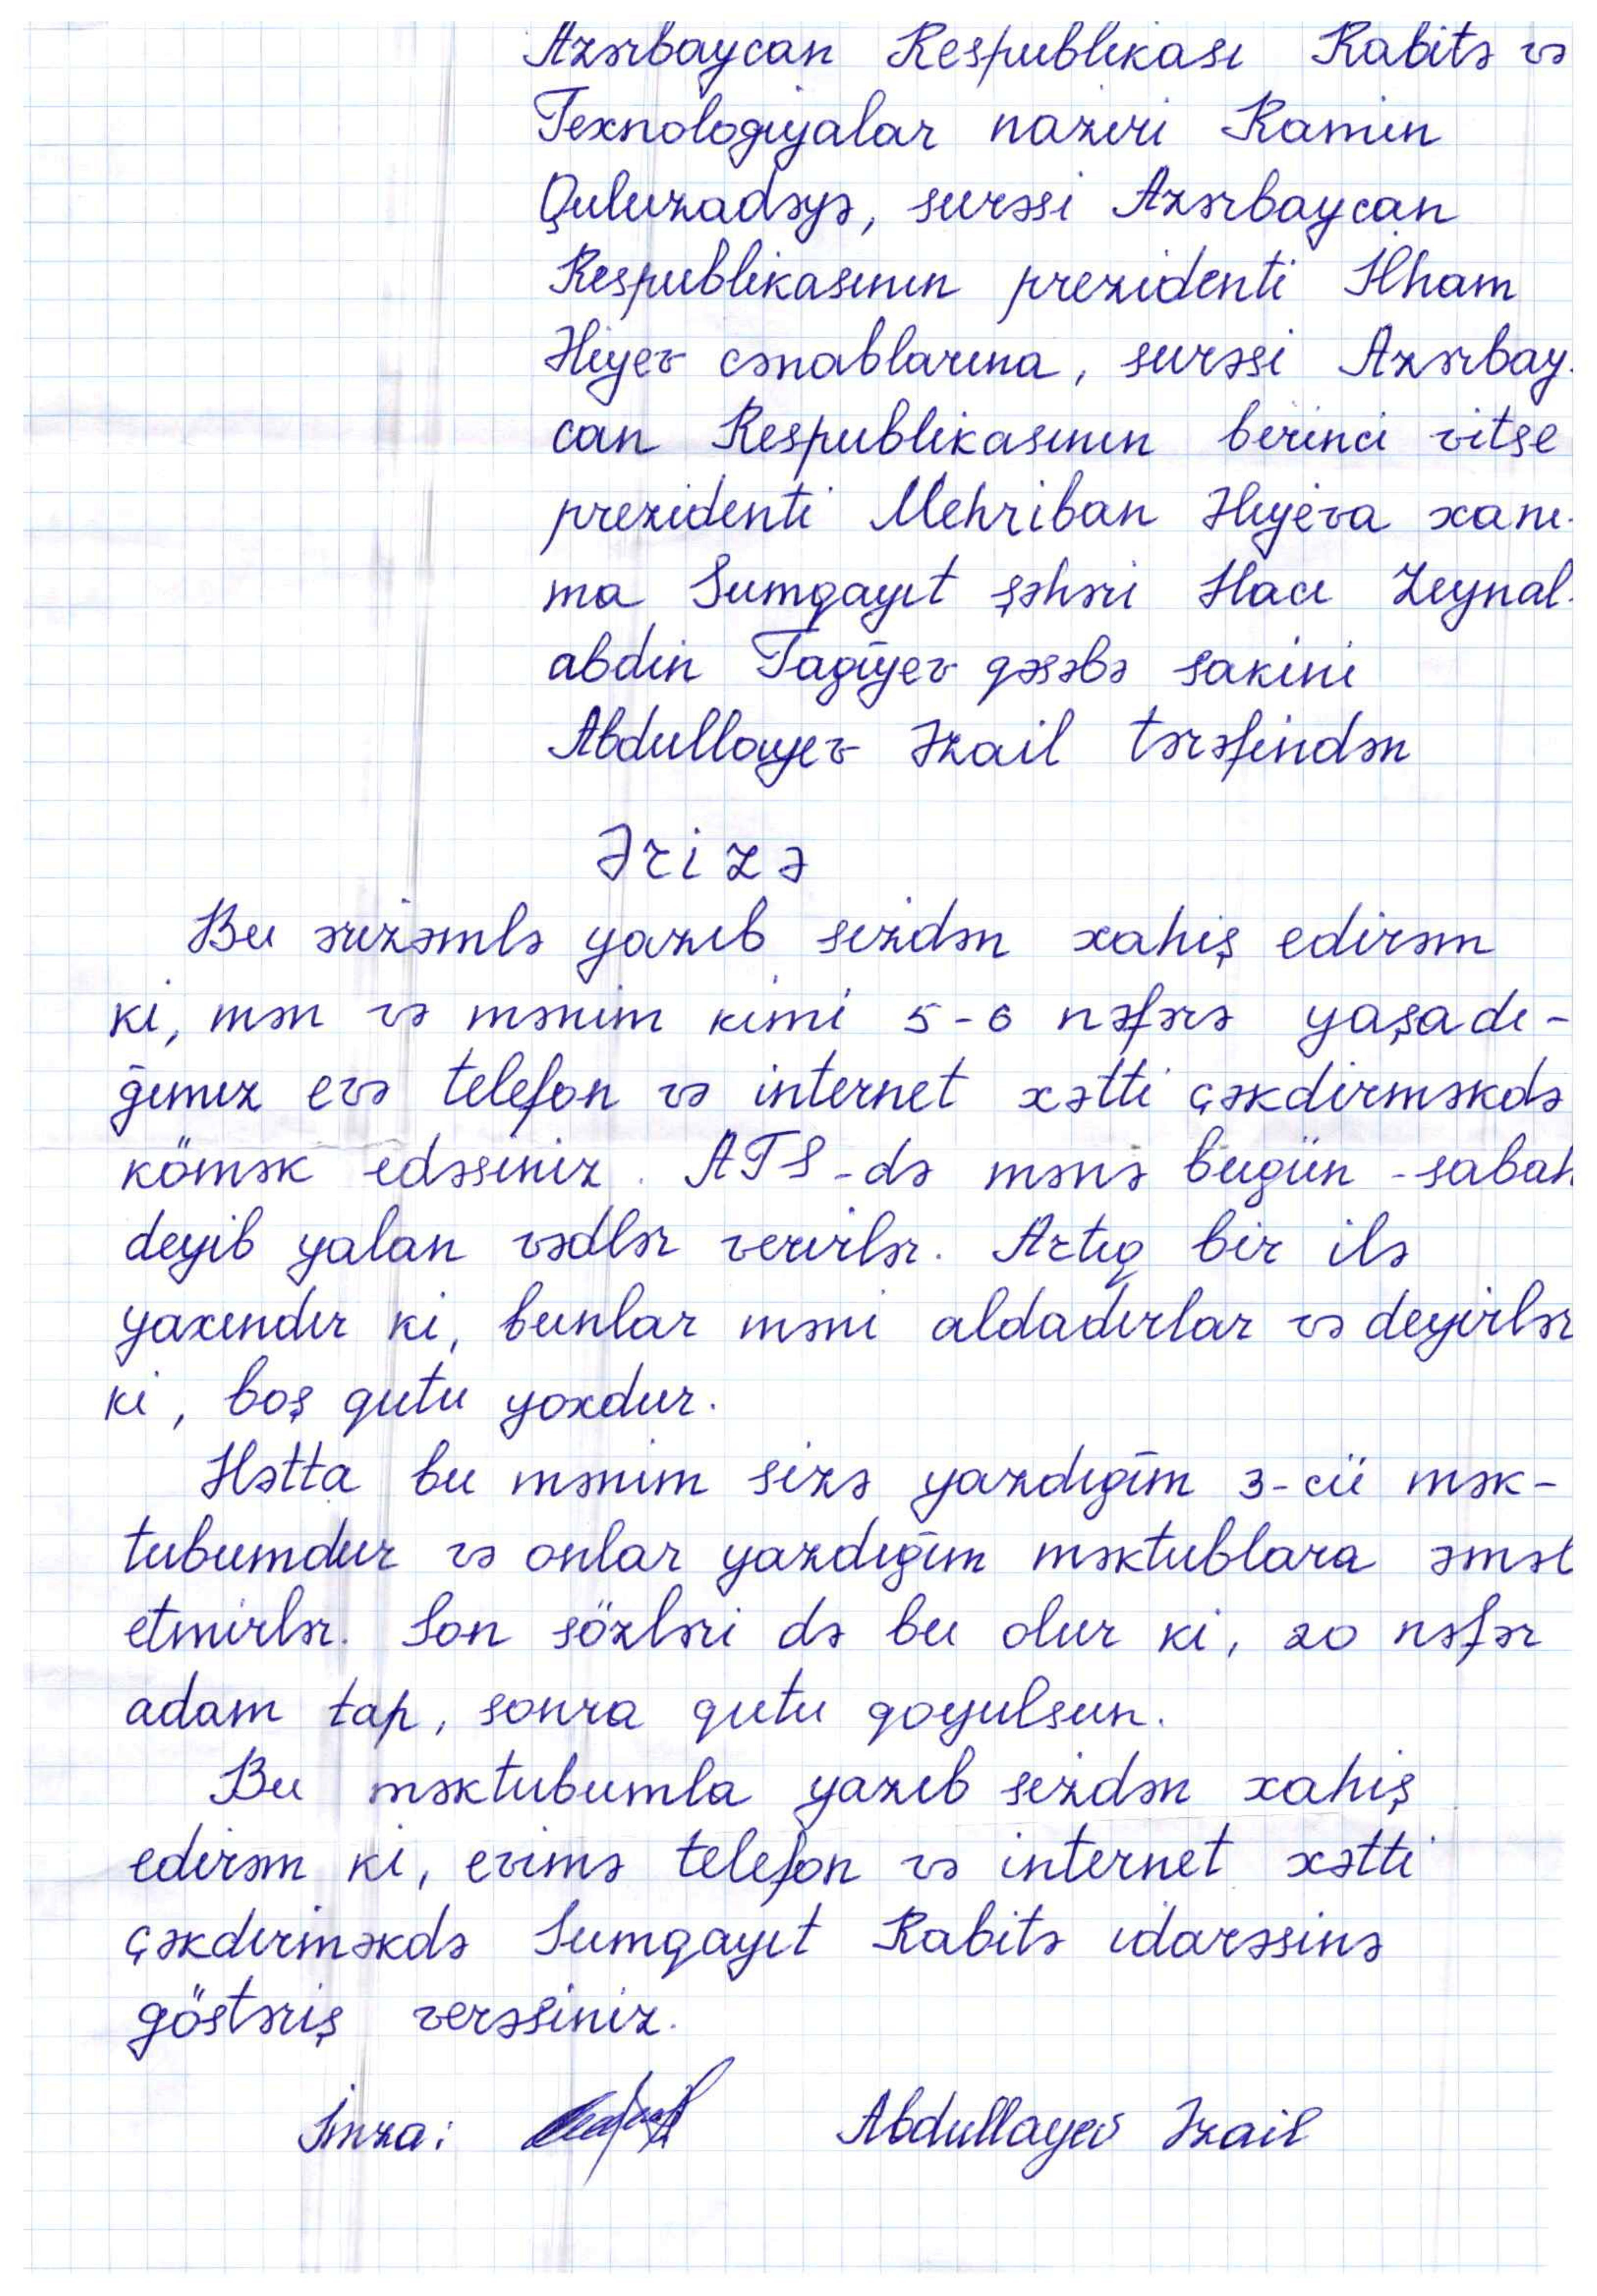 Azərbaycan Respublikası Rabitə və
Texnologiyalar naziri Ramin
Quluzadəyə, surəsi Azərbaycan
Respublikasının prezidenti İlham
Əliyev cənablarına, surəsi Azərbay-
can Respublikasının birinci vitse
prezidenti Mehriban Əliyeva xanı-
ma Sumqayıt şəhəri Hacı Zeynal-
abdin Tağıyev qəsəbə sakini
Abdullayev Əzail tərəfindən
Ərizə
Bu ərizəmlə yazıb sizdən xahiş edirəm
ki, mən və mənim kimi 5-6 nəfərə yaşadı-
ğımız evə telefon və internet xətti çəkdirməkdə
kömək edəsiniz. ATS-də mənə bugün-sabah
deyib yalan vədlər verirlər. Artıq bir ilə
yaxındır ki, bunlar məni aldadırlar və deyirlər
ki, boş qutu yoxdur.
Hətta bu mənim sizə yazdığım 3-cü mək-
tubumdur və onlar yazdığım məktublara əməl
etmirlər. Son sözləri də bu olur ki, 20 nəfər
adam tap, sonra qutu qoyulsun.
Bu məktubumla yazıb sizdən xahiş
edirəm ki, evimə telefon və internet xətti
çəkdirməkdə Sumqayıt Rabitə idarəsinə
göstəriş verəsiniz.
İmza: Abdullayev Əzail